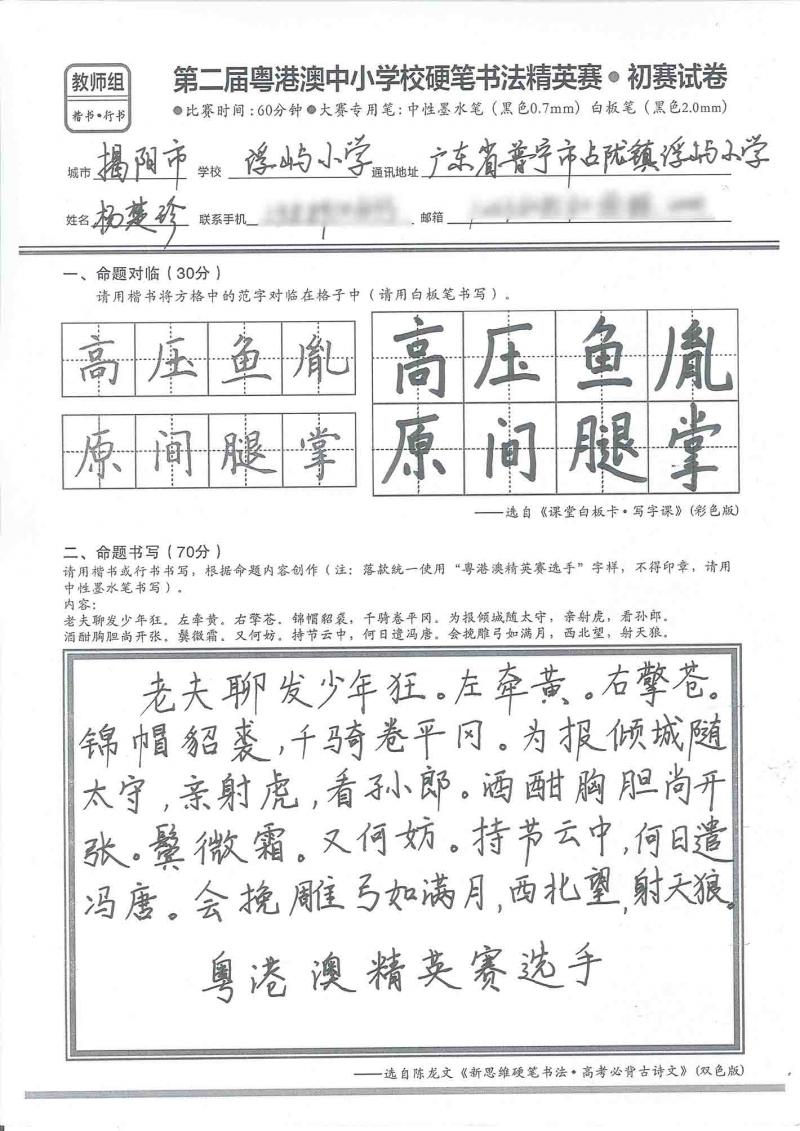 教师组
楷书•行书
第二届粤港澳中小学校硬笔书法精英赛•初赛试卷
●比赛时间:60分钟●大赛专用笔:中性墨水笔（黑色0.7mm）白板笔（黑色2.0mm）
城市 揭阳市 学校 浮屿小学 通讯地址 广东省普宁市占陇镇浮屿小学
姓名 杨楚珍 联系手机 邮箱
一、命题对临（30分）
请用楷书将方格中的范字对临在格子中（请用白板笔书写）。
高压鱼胤 高压鱼胤
原间腿掌 原间腿掌
——选自《课堂白板卡•写字课》（彩色版）
二、命题书写（70分）
请用楷书或行书书写，根据命题内容创作（注：落款统一使用“粤港澳精英赛选手”字样，不得印章，请用
中性墨水笔书写）。
内容：
老夫聊发少年狂。左牵黄。右擎苍。锦帽貂裘，千骑卷平冈。为报倾城随太守，亲射虎，看孙郎。
酒酣胸胆尚开张。鬓微霜。又何妨。持节云中，何日遣冯唐。会挽雕弓如满月，西北望，射天狼。
老夫聊发少年狂。左牵黄。右擎苍。
锦帽貂裘，千骑卷平冈。为报倾城随
太守，亲射虎，看孙郎。酒酣胸胆尚开
张。鬓微霜。又何妨。持节云中，何日遣
冯唐。会挽雕弓如满月，西北望，射天狼。
粤港澳精英赛选手
——选自陈龙文《新思维硬笔书法•高考必背古诗文》（双色版）